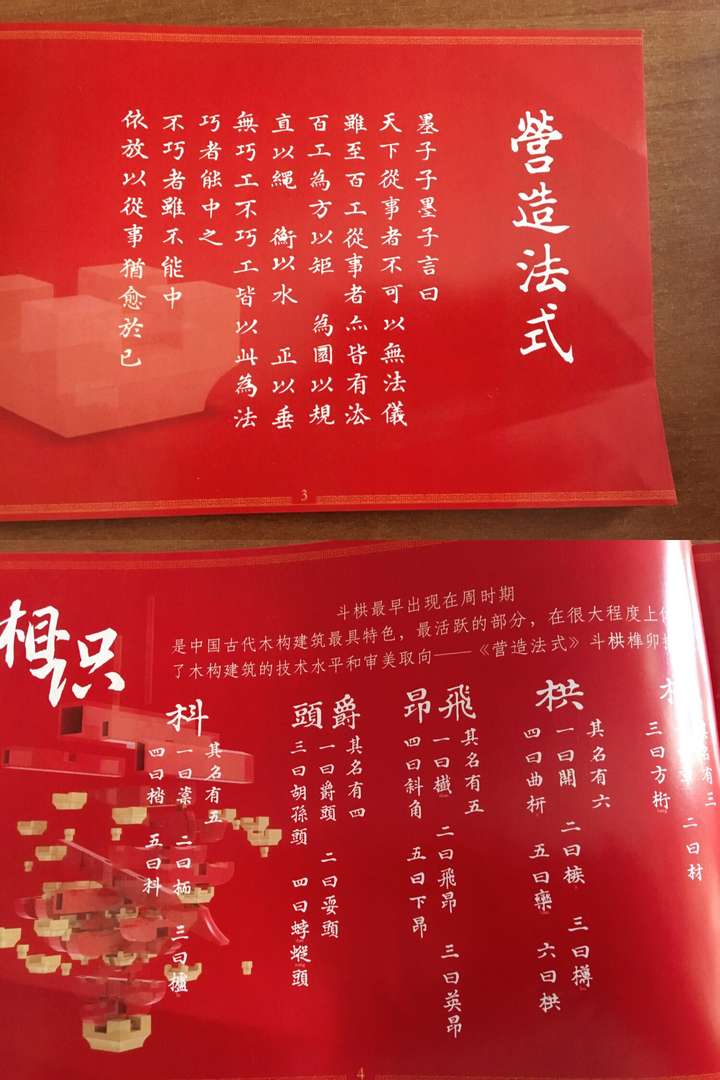 營造法式
墨子子墨子言曰
天下從事者不可以無法儀
雖至百工從事者亦皆有法
百工為方以矩 為圜以規
直以繩 衡以水 正以垂
無巧工不巧工皆以此為法
巧者能中之
不巧者雖不能中
依放以從事猶愈於已
3
相识
斗栱最早出现在周时期
是中国古代木构建筑最具特色，最活跃的部分，在很大程度上
了木构建筑的技术水平和审美取向——《营造法式》斗栱榫卯
其名有三
二曰材
三曰方桁
栱
其名有六
一曰開 二曰槉 三曰欂
四曰曲枅 五曰欒 六曰栱
飛昂
其名有五
一曰櫼 二曰飛昂 三曰英昂
四曰斜角 五曰下昂
爵頭
其名有四
一曰爵頭 二曰耍頭
三曰胡孫頭 四曰蜉蝬頭
科
其名有五
一曰棠 二曰栭 三曰櫨
四曰楷 五曰料
4